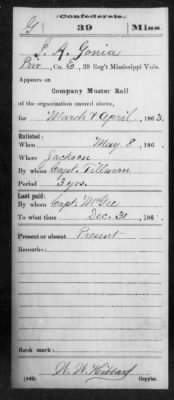 Confederate.
G 39 Miss.
J. A. Gonia
Priv, Co. E, 39 Reg't Mississippi Vols.
Appears on
Company Muster Roll
of the organization named above,
for March & April, 1863.
Enlisted:
When May 8, 186
Where Jackson
By whom Capt. Tillman
Period 3 yrs.
Last paid:
By whom Capt. McGee
To what time Dec. 31, 186
Present or absent Present
Remarks:
Book mark:
W. W. Hibbard
(642) Copyist.